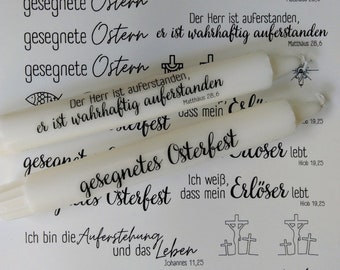 gesegnete Ostern
Der Herr ist auferstanden,
er ist wahrhaftig auferstanden
Matthäus 28,6
gesegnete Ostern
gesegnete Ostern
Der Herr ist auferstanden,
er ist wahrhaftig auferstanden
Matthäus 28,6
dass mein Erlöser lebt
Hiob 19,25
gesegnetes Osterfest
Ich weiß,
dass mein Erlöser lebt
Hiob 19,25
Ich bin die Auferstehung
und das Leben
Johannes 11,25